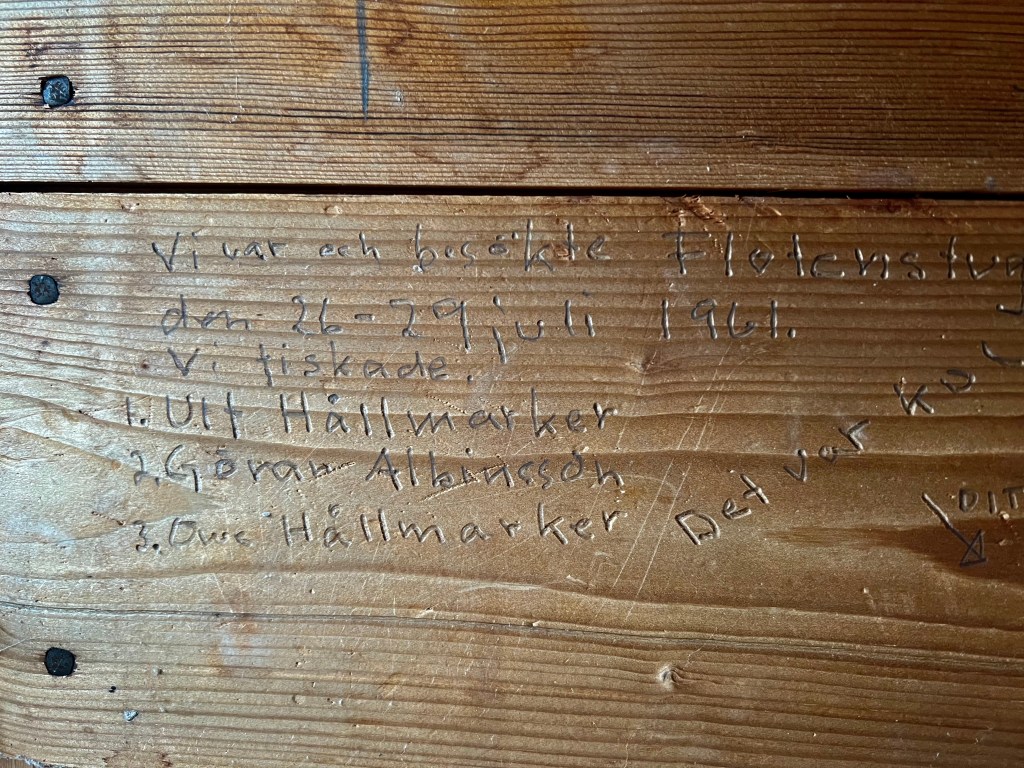 Vi var och besökte Flotenstug
den 26-29 juli 1961.
Vi fiskade.
1. Ulf Hållmarker
2. Göran Albinsson
3. Owe Hållmarker
Det var ku